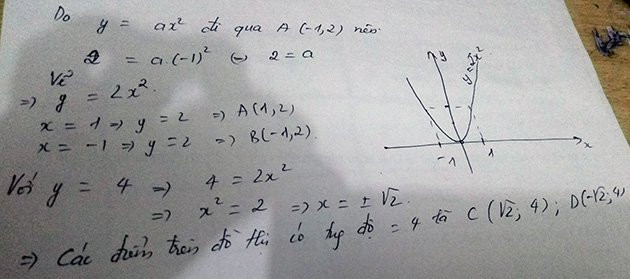 Do y = ax² đi qua A (-1,2) nên
2 = a.(-1)² (=) 2 = a
Vẽ
=> y = 2x².
x = 1 => y = 2 => A(1,2)
x = -1 => y = 2 => B(-1,2).
Với y = 4 => 4 = 2x²
=> x² = 2 => x = ± √2.
=> Các điểm trên đồ thị có tung độ = 4 là C (√2; 4) ; D(-√2; 4)
y
y=2x²
-1 1 x